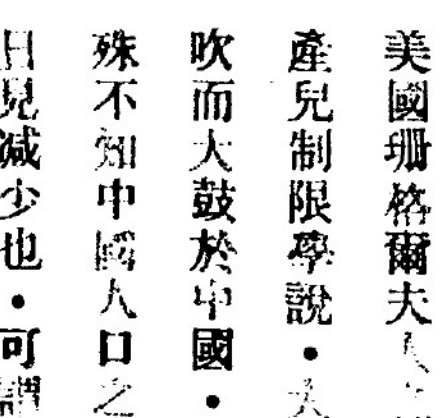 美國珊格爾夫人
產兒制限學說・大
吹而大鼓於中國・
殊不知中國人口之
日見減少也・可謂